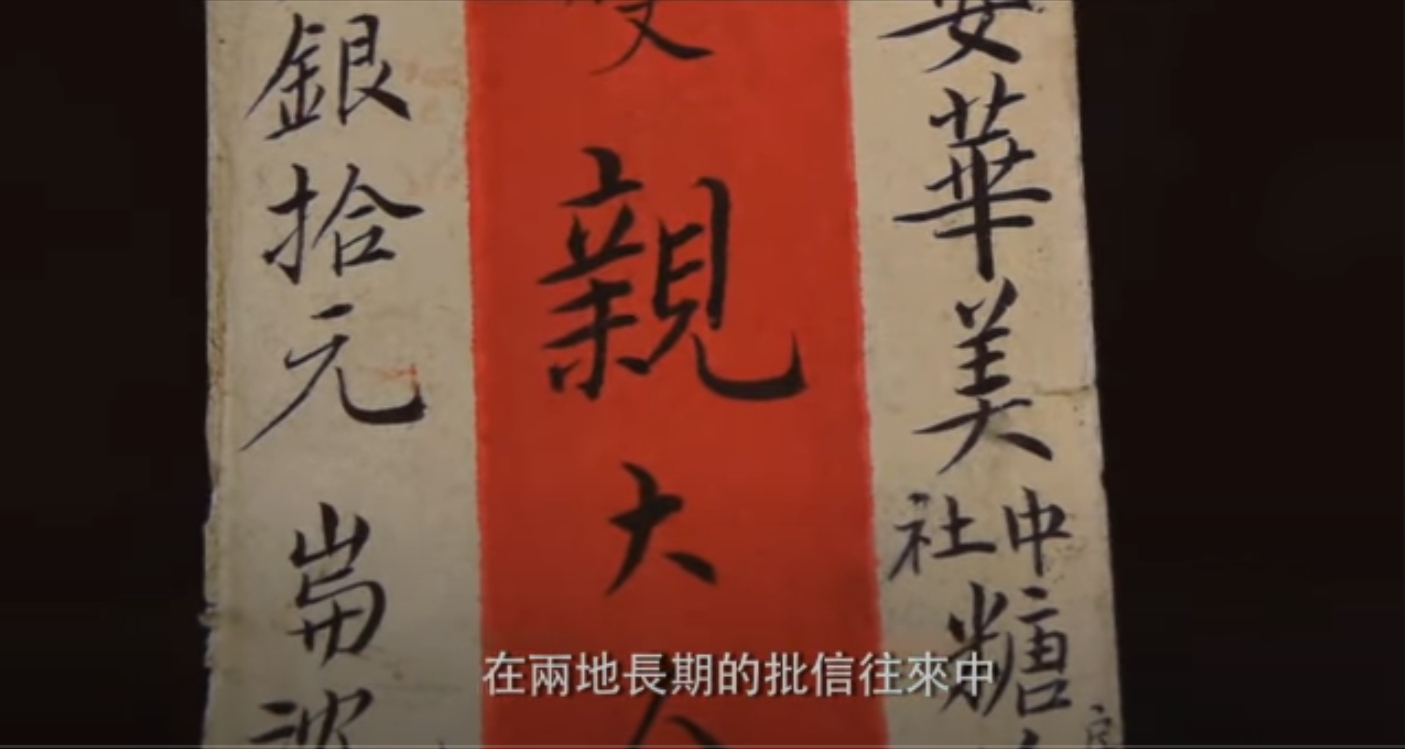 安華美中社糖
雙親大人
銀拾元 崙
在兩地長期的批信往來中